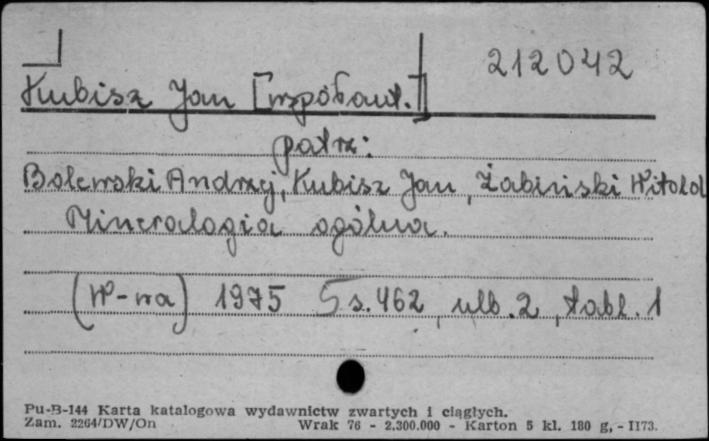 212042
Kubisz Jan [współaut.]
patrz:
Bolewski Andrzej, Kubisz Jan, Żabiński Witold
Mineralogia ogólna.
(W-wa) 1975 s. 462, nlb. 2, tabl. 1
Pu-B-144 Karta katalogowa wydawnictw zwartych i ciągłych.
Zam. 2264/DW/On Wrak 76 - 2.300.000 - Karton 5 kl. 180 g, - II73.